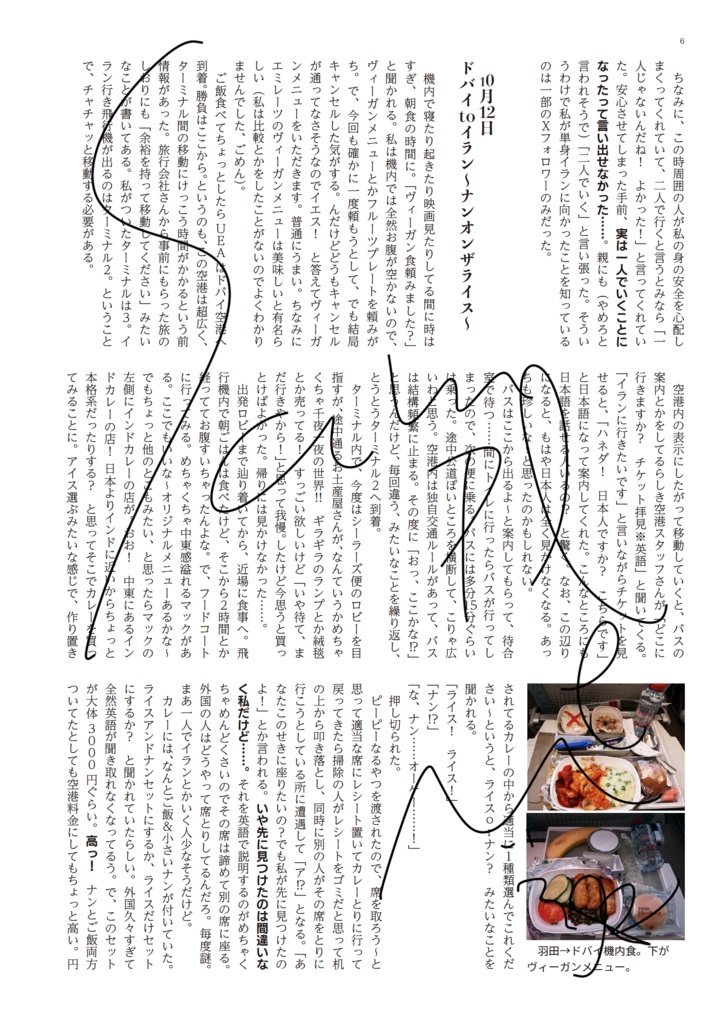 6
ちなみに、この時周囲の人が私の身の安全を心配し
まくってくれていて、二人で行くと言うとみなら「一
人じゃないんだね！　よかった！」と言ってくれてい
た。安心させてしまった手前、実は一人でいくことに
なったって言い出せなかった……。親にも（やめろと
言われそうで）「二人でいく」と言い張った。そうい
うわけで私が単身イランに向かったことを知っている
のは一部のXフォロワーのみだった。
10月12日
ドバイtoイラン〜ナンオンザライス〜
機内で寝たり起きたり映画見たりしてる間に時は
すぎ、朝食の時間に。「ヴィーガン食頼みました？」
と聞かれる。私は機内では全然お腹が空かないので、
ヴィーガンメニューとかフルーツプレートを頼みが
ち。で、今回も確かに一度頼もうとして、でも結局
キャンセルした気がする。んだけどどうもキャンセル
が通ってなさそうなのでイエス！　と答えてヴィーガ
ンメニューをいただきます。普通にうまい。ちなみに
エミレーツのヴィーガンメニューは美味しいと有名ら
しい（私は比較とかをしたことがないのでよくわかり
ませんでした、ごめん）。
ご飯食べてちょっとしたらUEAはドバイ空港へ
到着。勝負はここから。というのも、この空港は超広く、
ターミナル間の移動にけっこう時間がかかるという前
情報があった。旅行会社さんから事前にもらった旅の
しおりにも「余裕を持って移動してください」みたい
なことが書いてある。私がついたターミナルは3。イ
ラン行き飛行機が出るのはターミナル2。ということ
で、チャチャッと移動する必要がある。
空港内の表示にしたがって移動していくと、バスの
案内とかをしてるらしき空港スタッフさんが「どこに
行きますか？　チケット拝見※英語」と聞いてくる。
「イランに行きたいです」と言いながらチケットを見
せると、「ハネダ！　日本人ですか？　こちらです」
と日本語になって案内してくれた。こんなところにも
日本語を話せる人いるの？　と驚く。なお、この辺り
になると、もはや日本人は全く見かけなくなる。あっ
ちも珍しいな〜と思ったのかもしれない。
バスはここから出るよ〜と案内してもらって、待合
室で待つ……間にトイレに行ったらバスが行ってし
まったので、次の便に乗る。バスには多分15分ぐらい
は乗った。途中公道ぽいところを横断して、こりゃ広
いわと思う。空港内は独自交通ルールがあって、バス
は結構頻繁に止まる。その度に「おっ、ここかな⁉」
と思うんだけど、毎回違う、みたいなことを繰り返し、
とうとうターミナル2へ到着。
ターミナル内で、今度はシーラーズ便のロビーを目
指すが、途中通るお土産屋さんが、なんていうかめちゃ
くちゃ千夜一夜の世界‼　ギラギラのランプとか絨毯
とか売ってる！すっごい欲しいけど「いや待て、ま
だ行きやから！」と思って我慢。したけど今思うと買っ
とけばよかった。帰りには見かけなかった……。
出発ロビーまで辿り着いてから、近場に食事へ。飛
行機内で朝ごはんは食べたけど、そこから2時間とか
経っててお腹すいちゃったんよな。で、フードコート
に行ってみる。めちゃくちゃ中東感溢れるマックがあ
る。ここでもいいな〜オリジナルメニューあるかな〜
でもちょっと他のとこもみたい、と思ったらマックの
左側にインドカレーの店が。おお！　中東にあるイン
ドカレーの店！　日本よりインドに近いからちょっと
本格系だったりする？　と思ってそこでカレーを買っ
てみることに。アイス選ぶみたいな感じで、作り置き
羽田→ドバイ機内食。下が
ヴィーガンメニュー。
されてるカレーの中から適当に1種類選んでこれくだ
さい〜というと、ライスorナン？　みたいなことを
聞かれる。
「ライス！　ライス！」
「ナン⁉」
「な、ナン……オーケー…………！」
押し切られた。
ピーピーなるやつを渡されたので、席を取ろう〜と
思って適当な席にレシート置いてカレーとりに行って
戻ってきたら掃除の人がレシートをゴミだと思って机
の上から叩き落とし、同時に別の人がその席をとりに
行こうとしている所に遭遇して「ア⁉」となる。「あ
なたこのせきに座りたいの？でも私が先に見つけたの
よ！」とか言われる。いや先に見つけたのは間違いな
く私だけど……。それを英語で説明するのがめちゃく
ちゃめんどくさいのでその席は諦めて別の席に座る。
外国の人はどうやって席とりしてるんだろ。毎度謎。
まあ一人でイランとかいく人少なそうだけど。
カレーには、なんとご飯＆小さいナンが付いていた。
ライスアンドナンセットにするか、ライスだけセット
にするか？　と聞かれていたらしい。外国久々すぎて
全然英語が聞き取れなくなってるう。で、このセット
が大体3000円ぐらい。高っ！　ナンとご飯両方
ついてたとしても空港料金にしてもちょっと高い。円